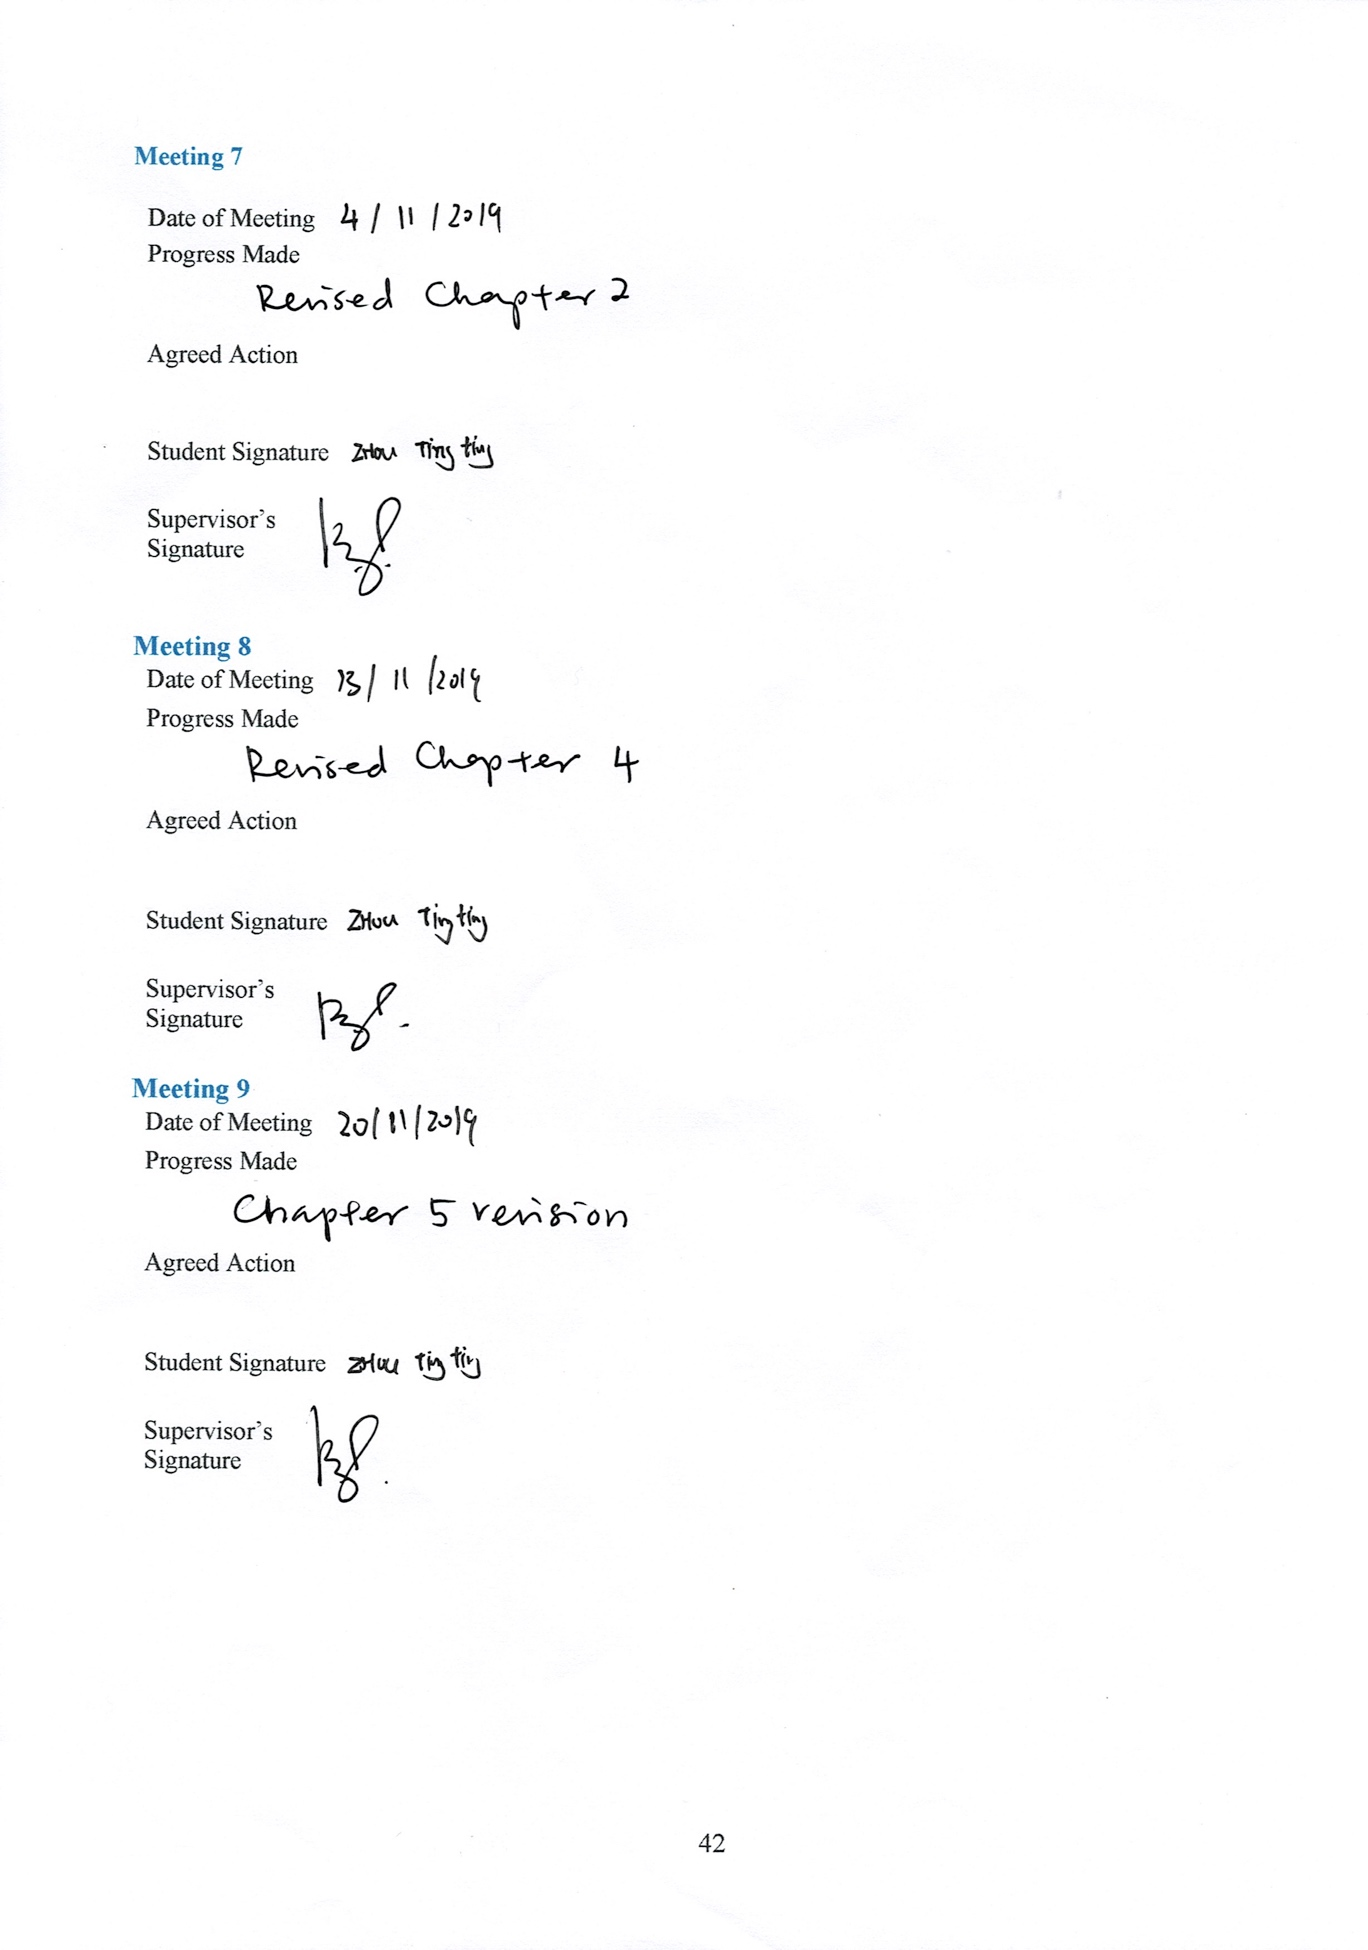 Meeting 7
Date of Meeting 4 / 11 / 2019
Progress Made
Revised Chapter 2
Agreed Action
Student Signature ZHOU Ting ting
Supervisor's
Signature
Meeting 8
Date of Meeting 13 / 11 / 2019
Progress Made
Revised Chapter 4
Agreed Action
Student Signature ZHOU Ting ting
Supervisor's
Signature
Meeting 9
Date of Meeting 20/11/2019
Progress Made
Chapter 5 revision
Agreed Action
Student Signature ZHOU Ting ting
Supervisor's
Signature
42